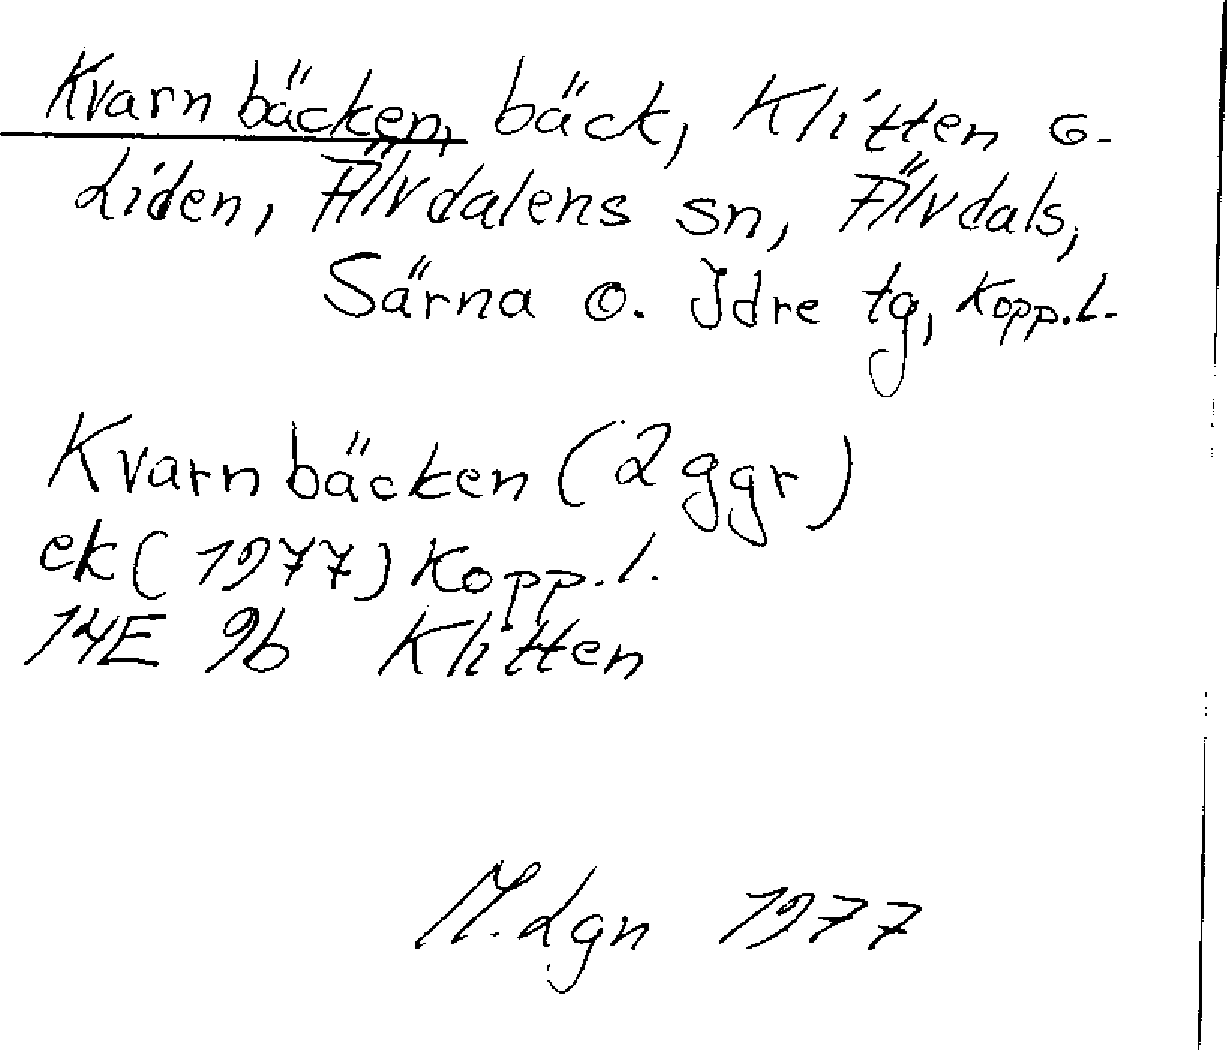 Kvarnbäcken, bäck, Klitten o.
Liden, Älvdalens sn, Älvdals,
Särna o. Idre tg, Kopp.l.
Kvarnbäcken (2 ggr)
ek (1977) Kopp.l.
14E 9b Klitten
M.Lgn 1977